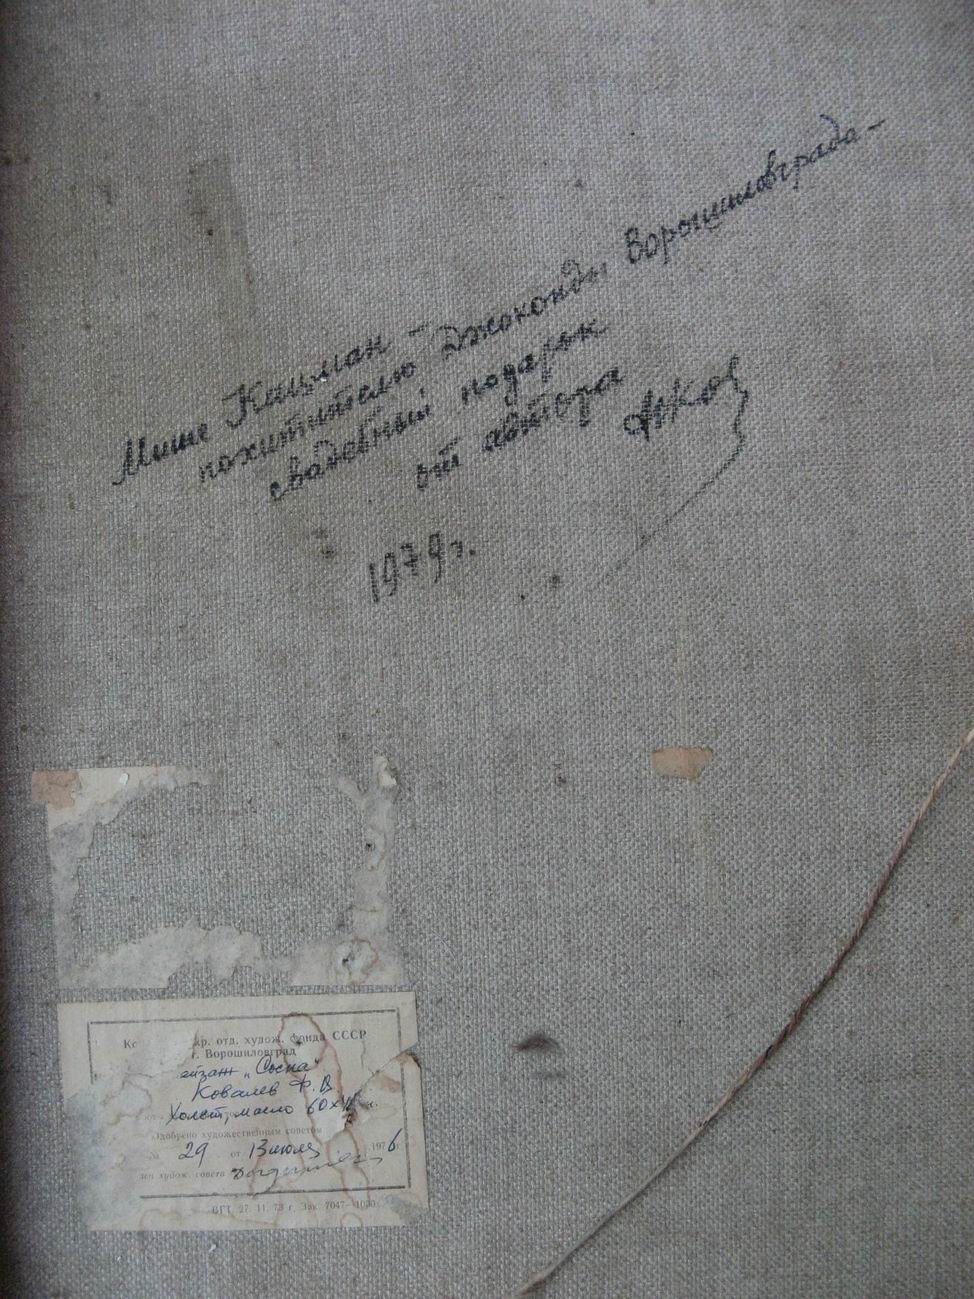 Мише Кацман –
похитителю Джоконды Ворошиловграда –
свадебный подарок
от автора
ФКов
1979 г.
кр. отд. худож. фонда СССР
г. Ворошиловград
ейзаж „Сосна"
Ковалев Ф. В
Холст, масло 60х
Одобрено художественным советом
№ 29 от 13 июля 1976
худож. совета
ВГТ 27. 11. 73 г. Зак. 7047—1000